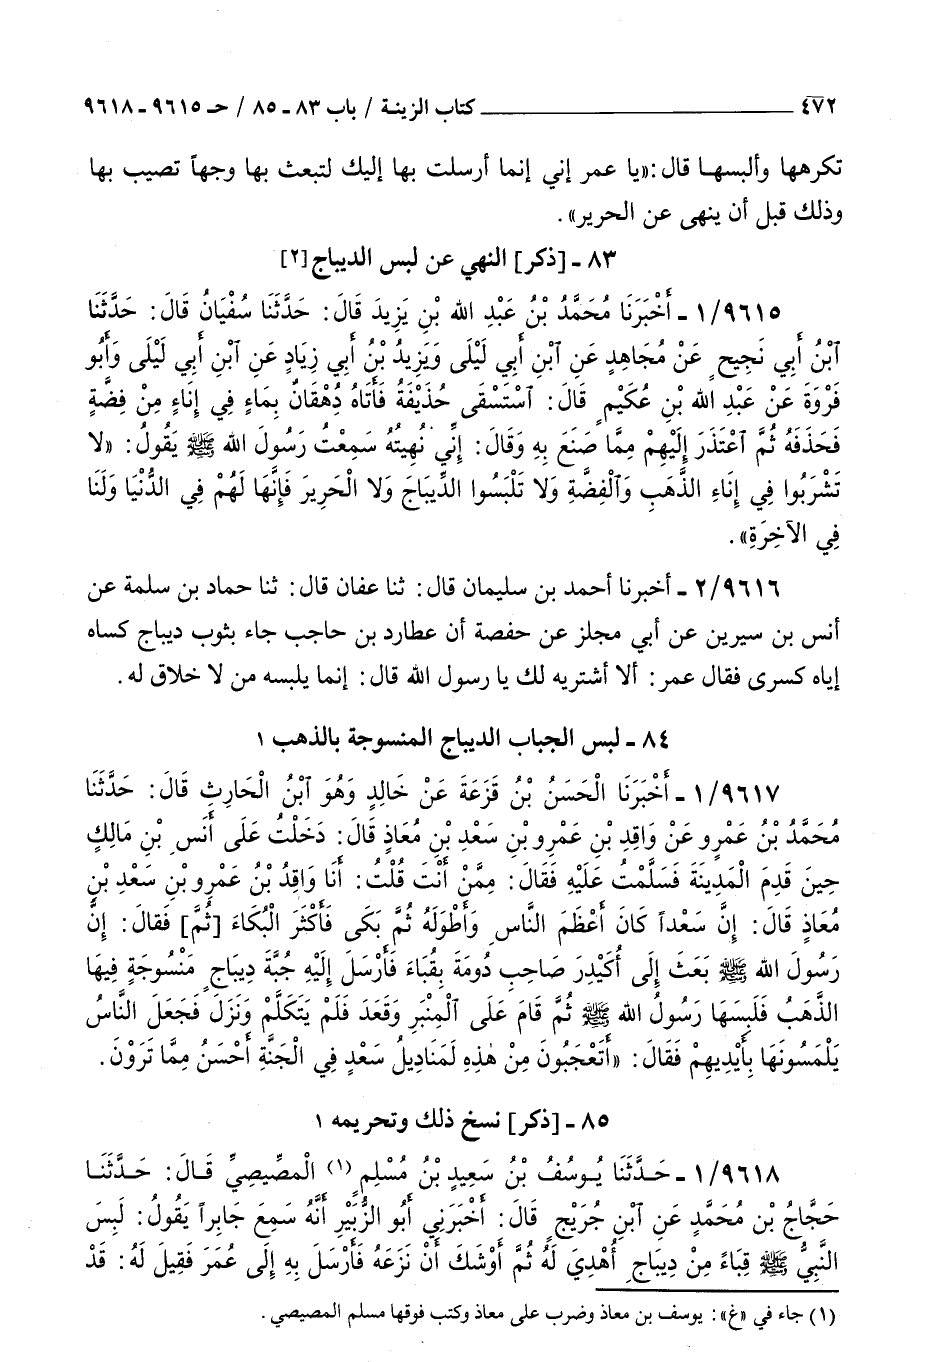 ٤٧٢ ـــــ كتاب الزينة / باب ٨٣ ـ ٨٥ / حـ ٩٦١٥ ـ ٩٦١٨
تكرهها وألبسهـا قال:«يا عمر إني إنما أرسلت بها إليك لتبعث بها وجهاً تصيب بها
وذلك قبل أن ينهى عن الحرير».
٨٣ ـ [ذكر] النهي عن لبس الديباج[٢]
١/٩٦١٥ ـ أَخْبَرَنَا مُحَمَّدُ بْنُ عَبْدِ الله بْنِ يَزِيدَ قَالَ: حَدَّثَنَا سُفْيَانُ قَالَ: حَدَّثَنَا
ٱبْنُ أَبِي نَجِيحٍ عَنْ مُجَاهِدٍ عَنِ ٱبْنِ أَبِي لَيْلَى وَيَزِيدُ بْنُ أَبِي زِيَادٍ عَنِ ٱبْنِ أَبِي لَيْلَى وَأَبُو
فَرْوَةَ عَنْ عَبْدِ الله بْنِ عُكَيْمٍ قَالَ: ٱسْتَسْقَى حُذَيْفَةُ فَأَتَاهُ دُهْقَانٌ بِمَاءٍ فِي إِنَاءٍ مِنْ فِضَّةٍ
فَحَذَفَهُ ثُمَّ ٱعْتَذَرَ إِلَيْهِمْ مِمَّا صَنَعَ بِهِ وَقَالَ: إِنِّي نُهِيتُهُ سَمِعْتُ رَسُولَ الله ﷺ يَقُولُ: «لا
تَشْرَبُوا فِي إِنَاءِ الذَّهَبِ وَٱلْفِضَّةِ وَلا تَلْبَسُوا الدِّيبَاجَ وَلا الْحَرِيرَ فَإِنَّهَا لَهُمْ فِي الدُّنْيَا وَلَنَا
فِي الآخِرَةِ».
٢/٩٦١٦ ـ أخبرنا أحمد بن سليمان قال: ثنا عفان قال: ثنا حماد بن سلمة عن
أنس بن سيرين عن أبي مجلز عن حفصة أن عطارد بن حاجب جاء بثوب ديباج كساه
إياه كسرى فقال عمر: ألا أشتريه لك يا رسول الله قال: إنما يلبسه من لا خلاق له.
٨٤ ـ لبس الجباب الديباج المنسوجة بالذهب ١
١/٩٦١٧ ـ أَخْبَرَنَا الْحَسَنُ بْنُ قَزَعَةَ عَنْ خَالِدٍ وَهُوَ ٱبْنُ الْحَارِثِ قَالَ: حَدَّثَنَا
مُحَمَّدُ بْنُ عَمْرٍو عَنْ وَاقِدِ بْنِ عَمْرِو بْنِ سَعْدِ بْنِ مُعَاذٍ قَالَ: دَخَلْتُ عَلَى أَنَسِ بْنِ مَالِكٍ
حِينَ قَدِمَ الْمَدِينَةَ فَسَلَّمْتُ عَلَيْهِ فَقَالَ: مِمَّنْ أَنْتَ قُلْتُ: أَنَا وَاقِدُ بْنُ عَمْرِو بْنِ سَعْدِ بْنِ
مُعَاذٍ قَالَ: إِنَّ سَعْداً كَانَ أَعْظَمَ النَّاسِ وَأَطْوَلَهُ ثُمَّ بَكَى فَأَكْثَرَ الْبُكَاءَ [ثُمَّ] فَقالَ: إِنَّ
رَسُولَ الله ﷺ بَعَثَ إِلَى أُكَيْدِرَ صَاحِبِ دُومَةَ بِقُبَاءَ فَأَرْسَلَ إِلَيْهِ جُبَّةَ دِيبَاجٍ مَنْسُوجَةٍ فِيهَا
الذَّهَبُ فَلَبِسَهَا رَسُولُ الله ﷺ ثُمَّ قَامَ عَلَى ٱلْمِنْبَرِ وَقَعَدَ فَلَمْ يَتَكَلَّمْ وَنَزَلَ فَجَعَلَ النَّاسُ
يَلْمَسُونَهَا بِأَيْدِيهِمْ فَقَالَ: «أَتَعْجَبُونَ مِنْ هٰذِهِ لَمَنَادِيلُ سَعْدٍ فِي الْجَنَّةِ أَحْسَنُ مِمَّا تَرَوْنَ.
٨٥ ـ [ذكر] نسخ ذلك وتحريمه ١
١/٩٦١٨ ـ حَـدَّثَنَا يُـوسُفُ بْنُ سَعِيدِ بْنُ مُسْلِمٍ (١) الْمِصِّيصِيِّ قَـالَ: حَـدَّثَنَـا
حَجَّاجُ بْن مُحَمَّدٍ عَنِ ٱبْنِ جُرَيْجٍ قَالَ: أَخْبَرَنِي أَبُو الزُّبَيْرِ أَنَّهُ سَمِعَ جَابِراً يَقُولُ: لَبِسَ
النَّبِيُّ ﷺ قِبَاءً مِنْ دِيبَاجٍ أُهْدِيَ لَهُ ثُمَّ أَوْشَكَ أَنْ نَزَعَهُ فَأَرْسَلَ بِهِ إِلَى عُمَرَ فَقِيلَ لَهُ: قَدْ
(١) جاء في «غ»: يوسف بن معاذ وضرب على معاذ وكتب فوقها مسلم المصيصي.